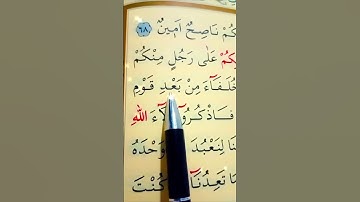 كُمْ نَاصِحٌ أَمِينٌ ٦٨
كُمْ عَلَىٰ رَجُلٍ مِنْكُمْ
خُلَفَاءَ مِنْ بَعْدِ قَوْمِ
فَاذْكُرُوا آلَاءَ اللهِ
نَا لِنَعْبُدَ وَحْدَهُ
مَا تَعِدُنَا كُنْتَ